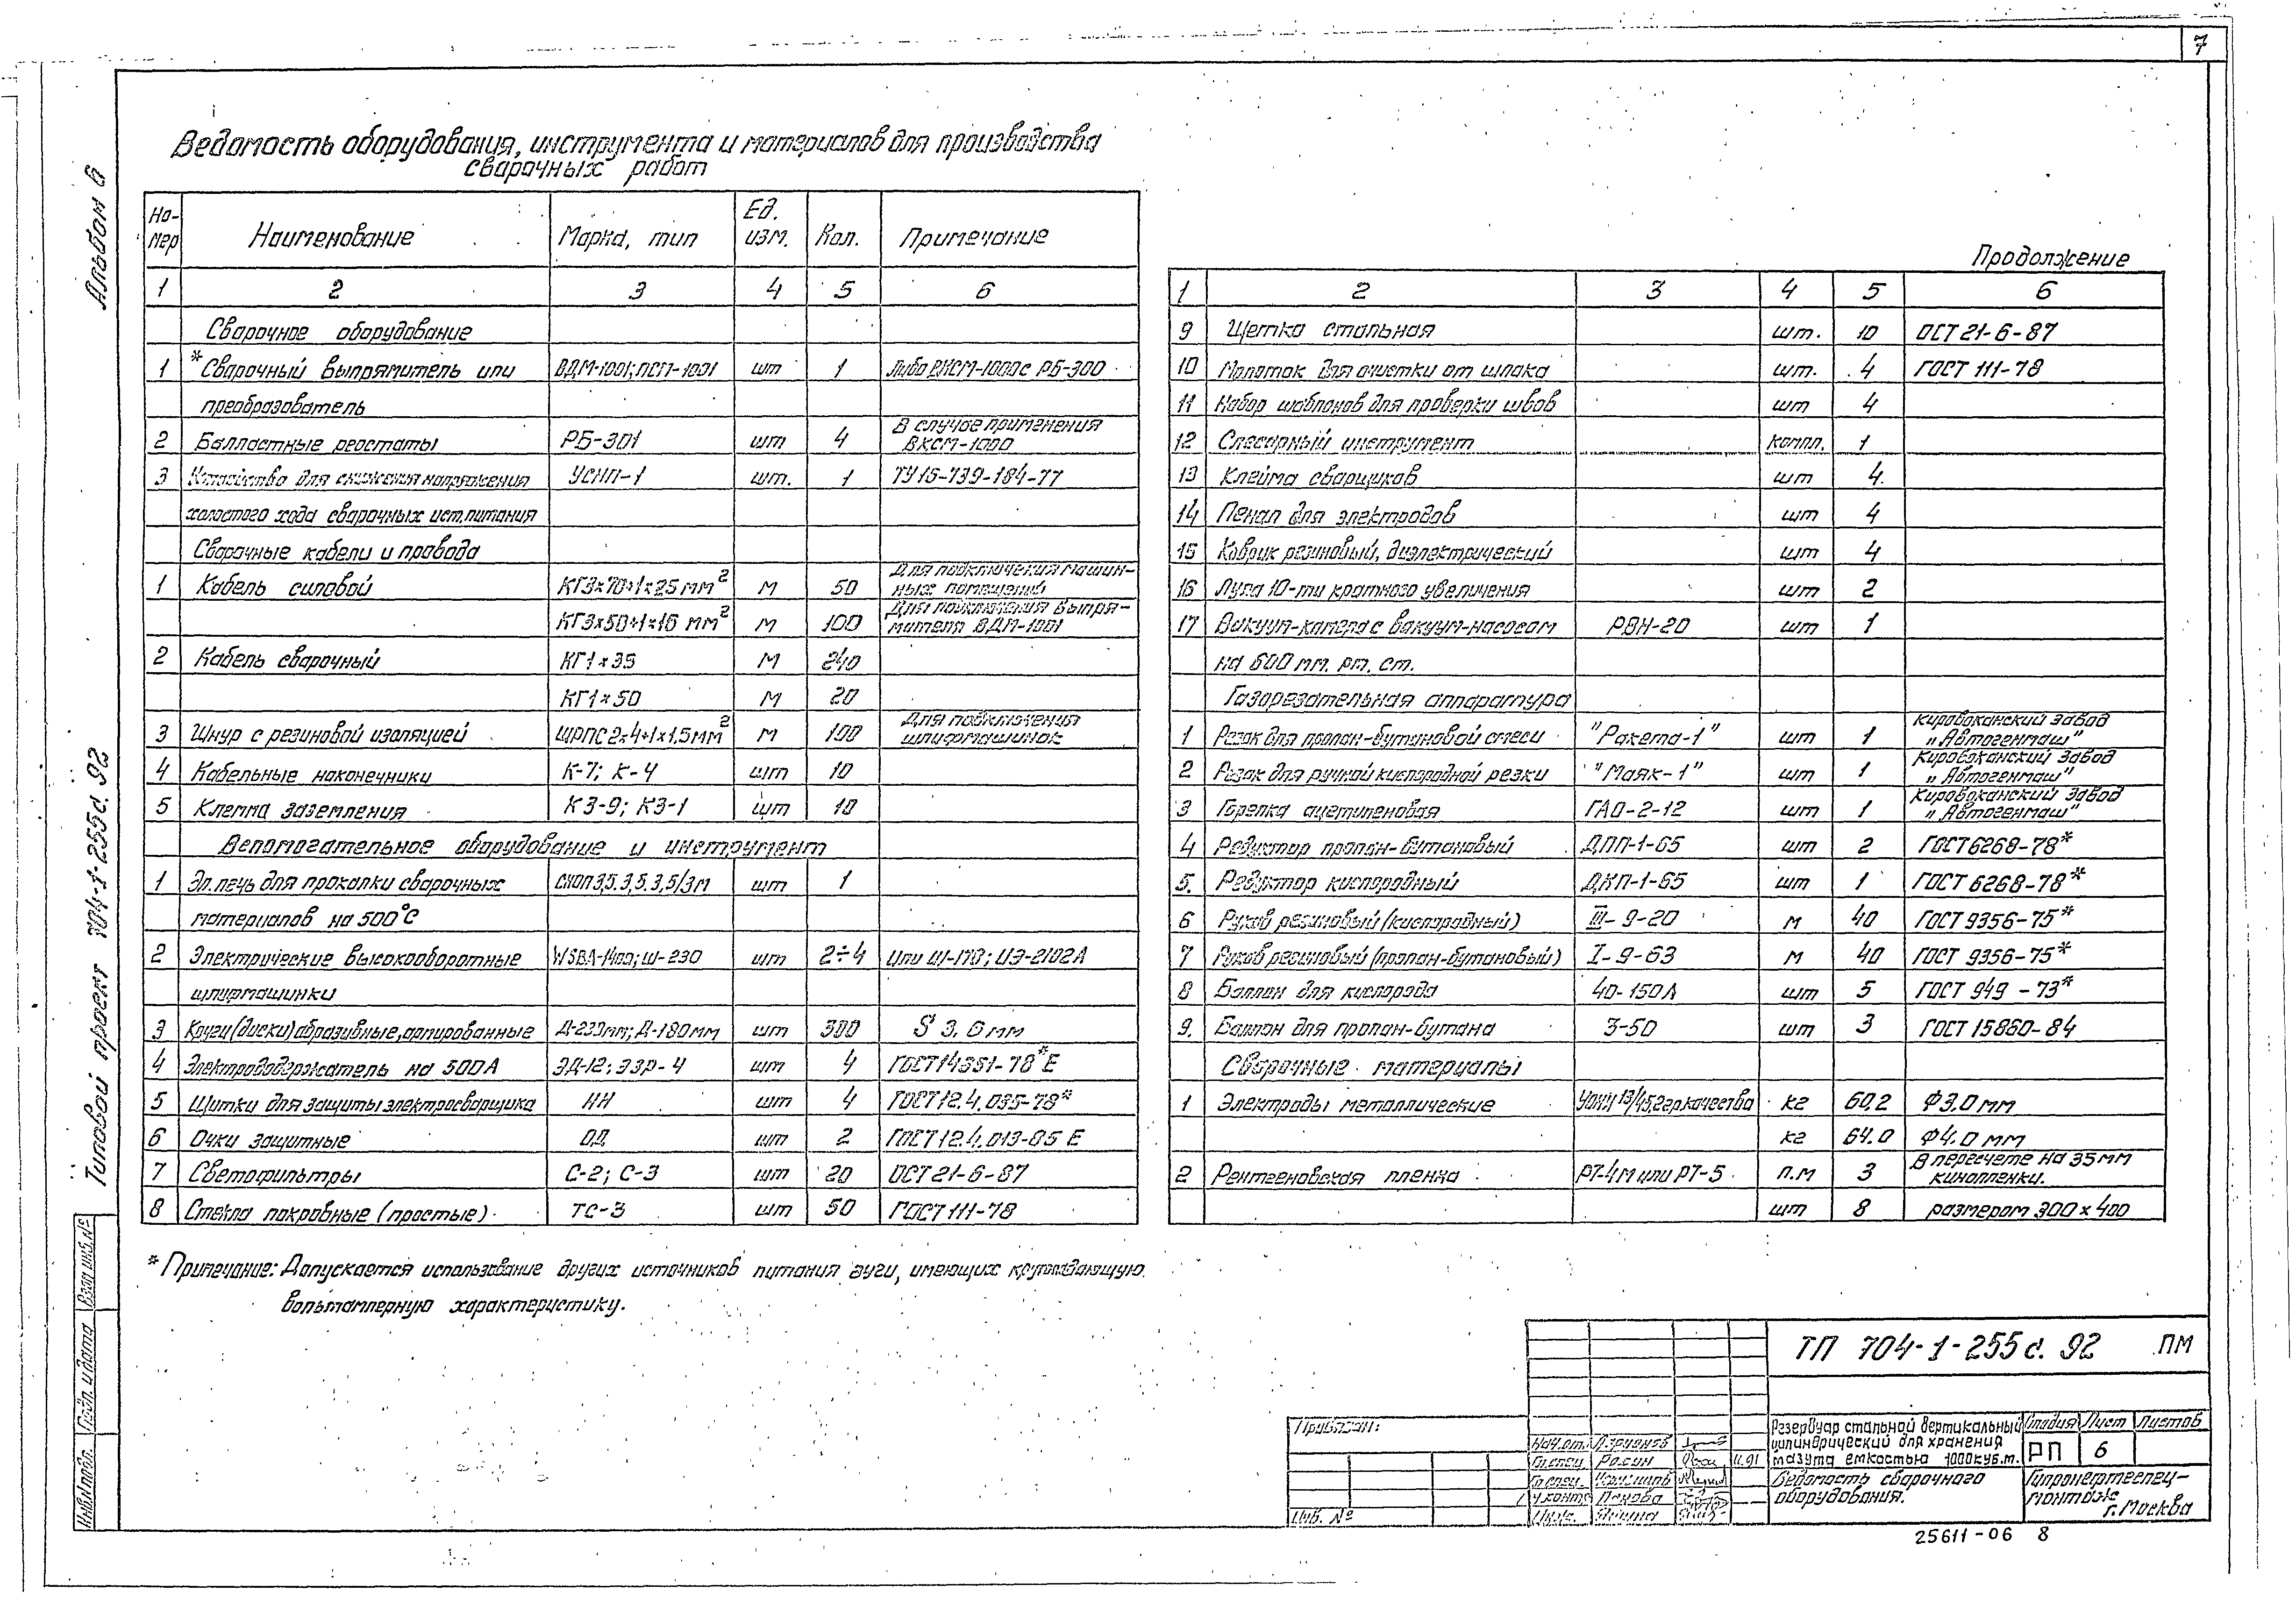 7
Альбом 6
Типовой проект 704-1-255с. 92
Ведомость оборудования, инструмента и материалов для производства
сварочных работ
Но-
мер
Наименование
Марка, тип
Ед.
изм.
Кол.
Примечание
1 2 3 4 5 6
Сварочное оборудование
1 *Сварочный выпрямитель или ВДМ-1001; ПСМ-1001 шт 1 Либо ВКСМ-1000 с РБ-300
преобразователь
2 Балластные реостаты РБ-301 шт 4 В случае применения
ВКСМ-1000
3 Устройство для снижения напряжения УСНП-1 шт. 1 ТУ15-739-184-77
холостого хода сварочных ист. питания
Сварочные кабели и провода
1 Кабель силовой КГ3х70+1х25 мм² м 50 Для подключения машин-
ных помещений
КГ3х50+1х16 мм² м 100 Для подключения выпря-
мителя ВДМ-1001
2 Кабель сварочный КГ1х35 м 240
КГ1х50 м 20
3 Шнур с резиновой изоляцией ШРПС 2х4+1х1,5мм² м 100 Для подключения
шлифмашинок
4 Кабельные наконечники К-7; К-4 шт 10
5 Клемма заземления КЗ-9; КЗ-1 шт 10
Вспомогательное оборудование и инструмент
1 Эл. печь для прокалки сварочных СНОЛ 3,5.3,5.3,5/3М шт 1
материалов на 500°С
2 Электрические высокооборотные WSBA-1400; Ш-230 шт 2÷4 Или Ш-178; ИЭ-2102А
шлифмашинки
3 Круги (диски) абразивные, армированные Д-230мм; Д-180мм шт 300 S 3,6 мм
4 Электрододержатель на 500А ЭД-12; ЭЗР-4 шт 4 ГОСТ14351-78*Е
5 Щитки для защиты электросварщика НН шт 4 ГОСТ12.4.035-78*
6 Очки защитные ОД шт 2 ГОСТ12.4.013-85 Е
7 Светофильтры С-2; С-3 шт 20 ОСТ21-6-87
8 Стекла покровные (простые) ТС-3 шт 50 ГОСТ 111-78
* Примечание: Допускается использование других источников питания дуги, имеющих крутопадающую
вольтамперную характеристику.
Продолжение
1 2 3 4 5 6
9 Щетка стальная шт. 10 ОСТ 21-6-87
10 Молоток для очистки от шлака шт. 4 ГОСТ 111-78
11 Набор шаблонов для проверки швов шт 4
12 Слесарный инструмент компл. 1
13 Клейма сварщиков шт 4
14 Пенал для электродов шт 4
15 Коврик резиновый, диэлектрический шт 4
16 Лупа 10-ти кратного увеличения шт 2
17 Вакуум-камера с вакуум-насосом РВН-20 шт 1
на 600 мм. рт. ст.
Газорезательная аппаратура
1 Резак для пропан-бутановой смеси "Ракета-1" шт 1 Кировоканский завод
"Автогенмаш"
2 Резак для ручной кислородной резки "Маяк-1" шт 1 Кировоканский завод
"Автогенмаш"
3 Горелка ацетиленовая ГАО-2-12 шт 1 Кировоканский завод
"Автогенмаш"
4 Редуктор пропан-бутановый ДПП-1-65 шт 2 ГОСТ6268-78*
5. Редуктор кислородный ДКП-1-65 шт 1 ГОСТ 6268-78*
6 Рукав резиновый (кислородный) III-9-20 м 40 ГОСТ 9356-75*
7 Рукав резиновый (пропан-бутановый) I-9-63 м 40 ГОСТ 9356-75*
8 Баллон для кислорода 40-150Л шт 5 ГОСТ 949-73*
9. Баллон для пропан-бутана 3-50 шт 3 ГОСТ 15860-84
Сварочные материалы
1 Электроды металлические УОНИ 13/45, 2гр. качества кг 60,2 Ф3,0 мм
кг 64.0 Ф4.0 мм
2 Рентгеновская пленка РТ-4М или РТ-5 п.м 3 В пересчете на 35мм
кинопленки.
шт 8 размером 300 х 400
ТП 704-1-255с. 92 ПМ
Привязан:
Инв. №
Нач.от.
Гл.спец. Росин 11.91
Гл.спец.
Н.контр.
Инж.
Резервуар стальной вертикальный
цилиндрический для хранения
мазута емкостью 1000куб.м.
Стадия Лист Листов
РП 6
Ведомость сварочного
оборудования.
Гипронефтеспец-
монтаж
г. Москва
25611-06 8
Взам. инв. №
Подп. и дата
Инв.№ подл.